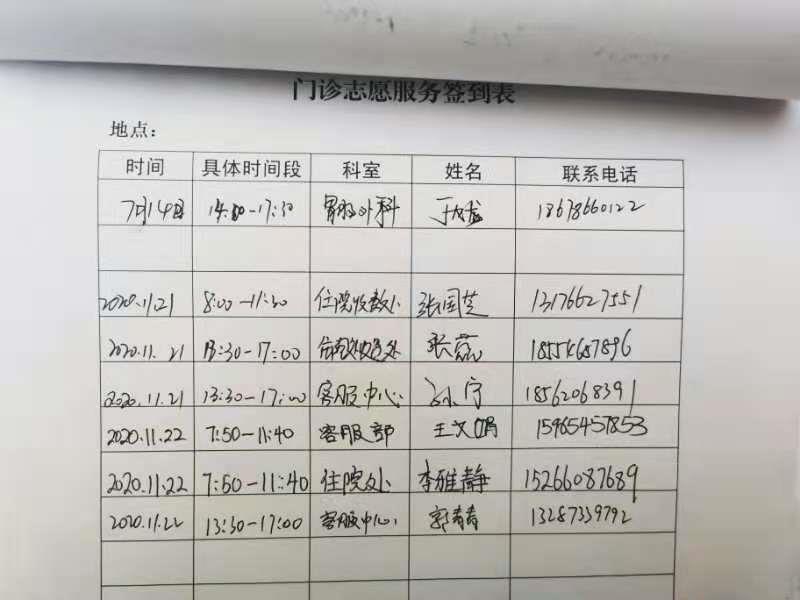 门诊志愿服务签到表
地点：
时间 具体时间段 科室 姓名 联系电话
7月14日 14:00-17:30 胃肠外科 18678660122
2020.11.21 8:00-11:30 住院收费处 张国芝 13176627551
2020.11.21 13:30-17:00 张蕊 18554687896
2020.11.21 13:30-17:00 客服中心 孙宁 18562068391
2020.11.22 7:50-11:40 客服部 王文娟 15965457853
2020.11.22 7:50-11:40 住院处 李雅静 15266087689
2020.11.22 13:30-17:00 客服中心 郭青青 13287339792